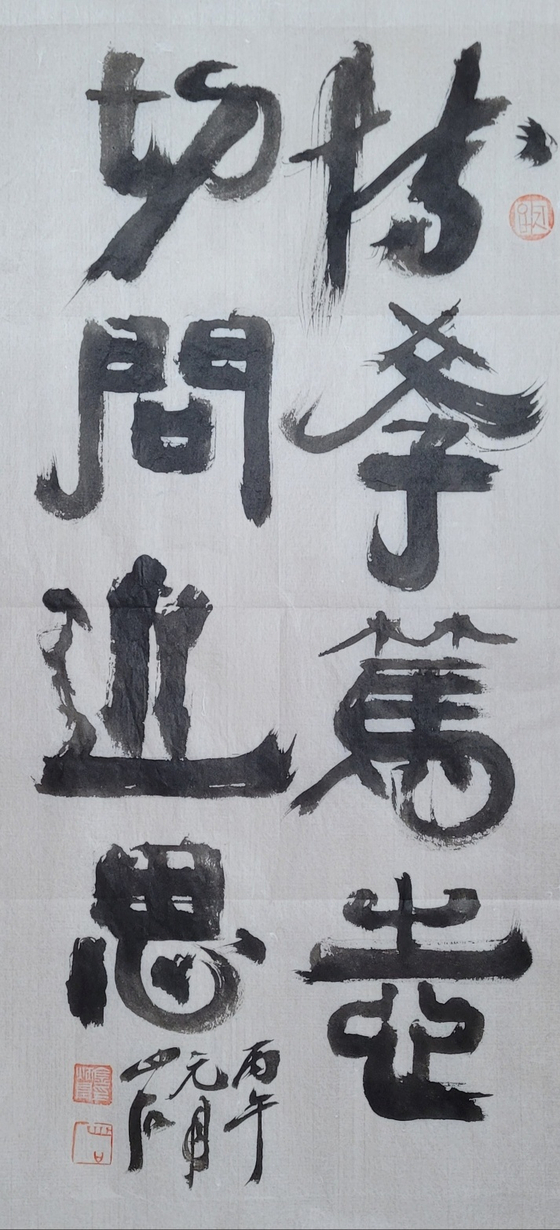 博學篤志
切問近思
丙午
元月
山石